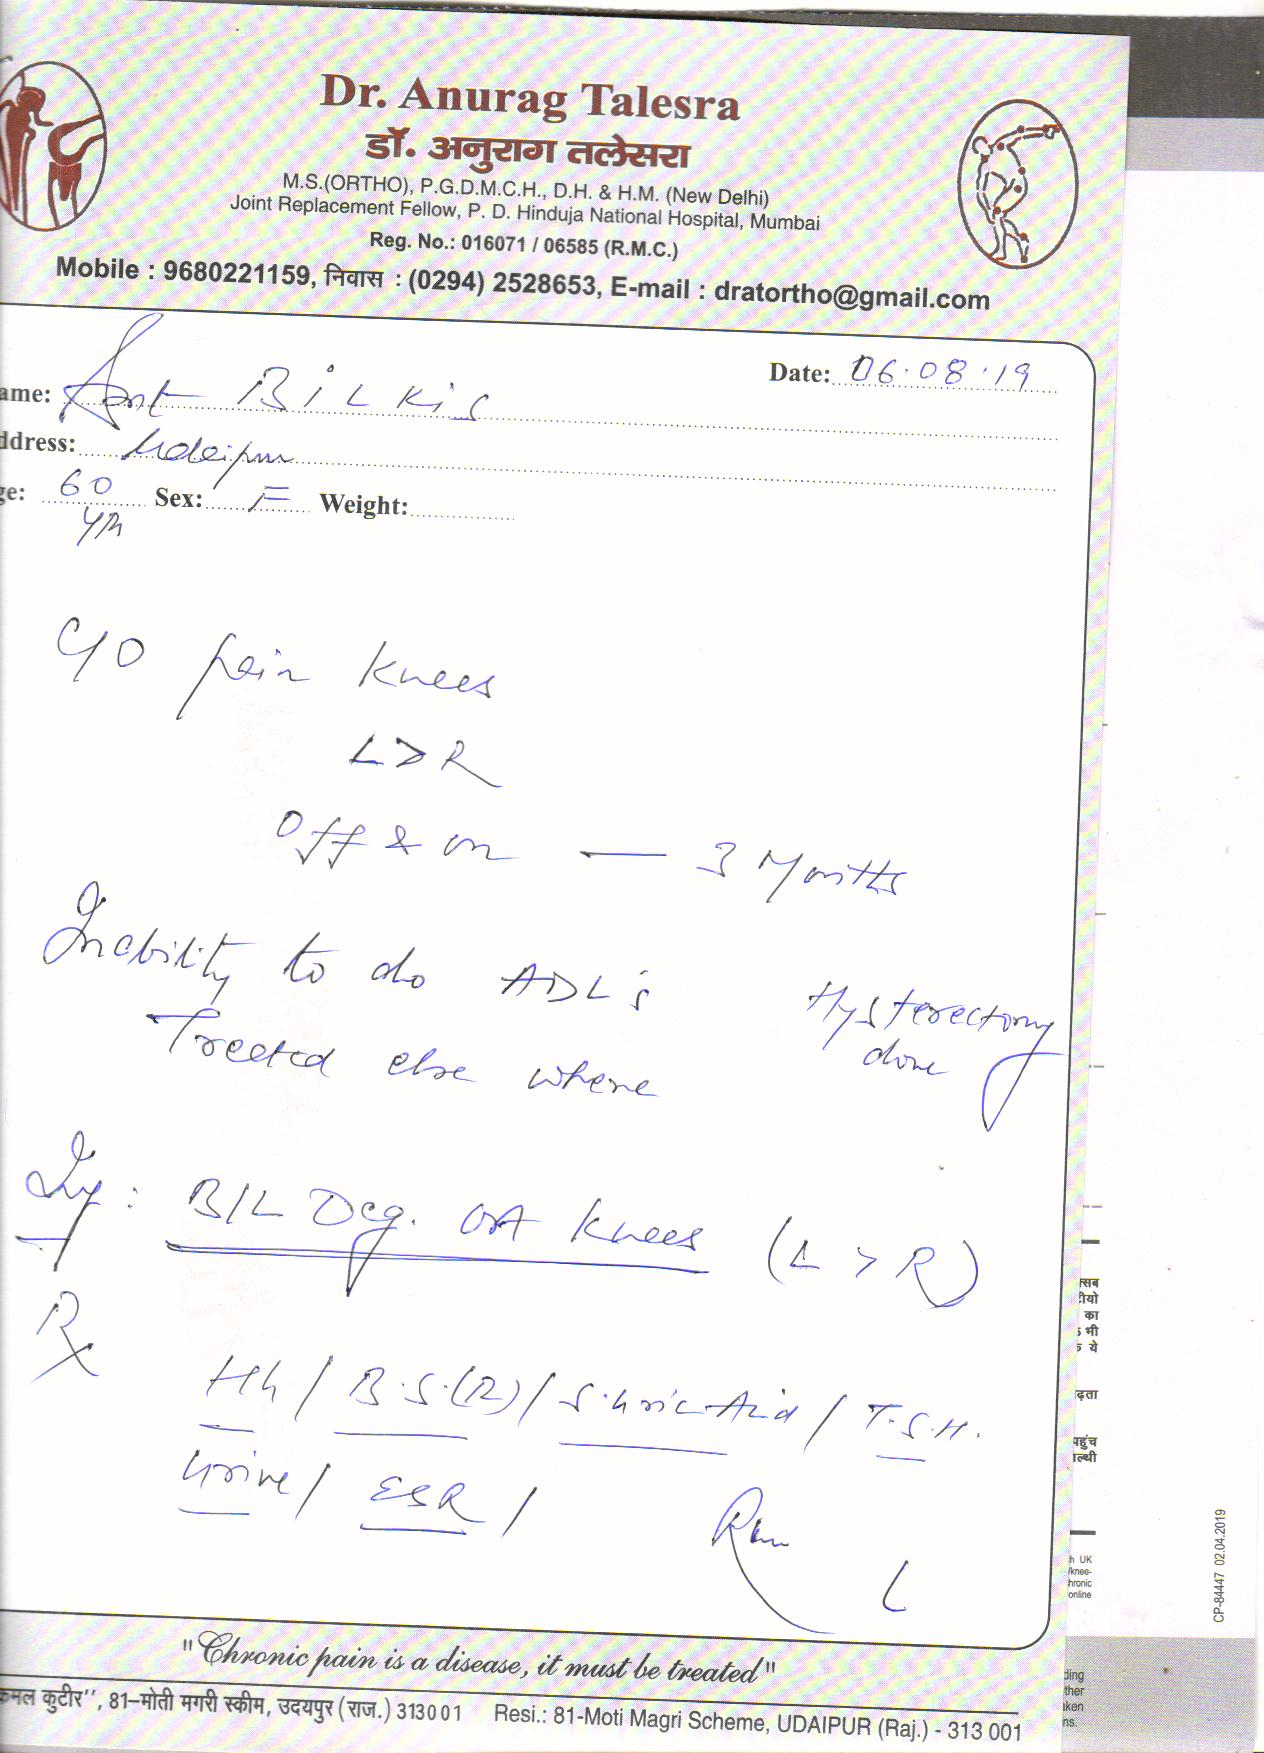 Dr. Anurag Talesra
डॉ. अनुराग तलेसरा
M.S.(ORTHO), P.G.D.M.C.H., D.H. & H.M. (New Delhi)
Joint Replacement Fellow, P. D. Hinduja National Hospital, Mumbai
Reg. No.: 016071 / 06585 (R.M.C.)
Mobile : 9680221159, निवास : (0294) 2528653, E-mail : dratortho@gmail.com
Date: 06.08.19
ame: Smt BilKis
ddress: Udaipur
ge: 60 Sex: F Weight:
yr
C/O pain knees
L > R
Off & on — 3 Months
Inability to do ADL's
Hysterectomy
done
Treated else where
B/L Deg. OA Knees (L > R)
Rx
Hb / B.S.(R) / S. Uric Acid / T.S.H.
Urine / ESR /
"Chronic pain is a disease, it must be treated"
कमल कुटीर'', 81–मोती मगरी स्कीम, उदयपुर (राज.) 313001 Resi.: 81-Moti Magri Scheme, UDAIPUR (Raj.) - 313 001
CP-84447 02.04.2019